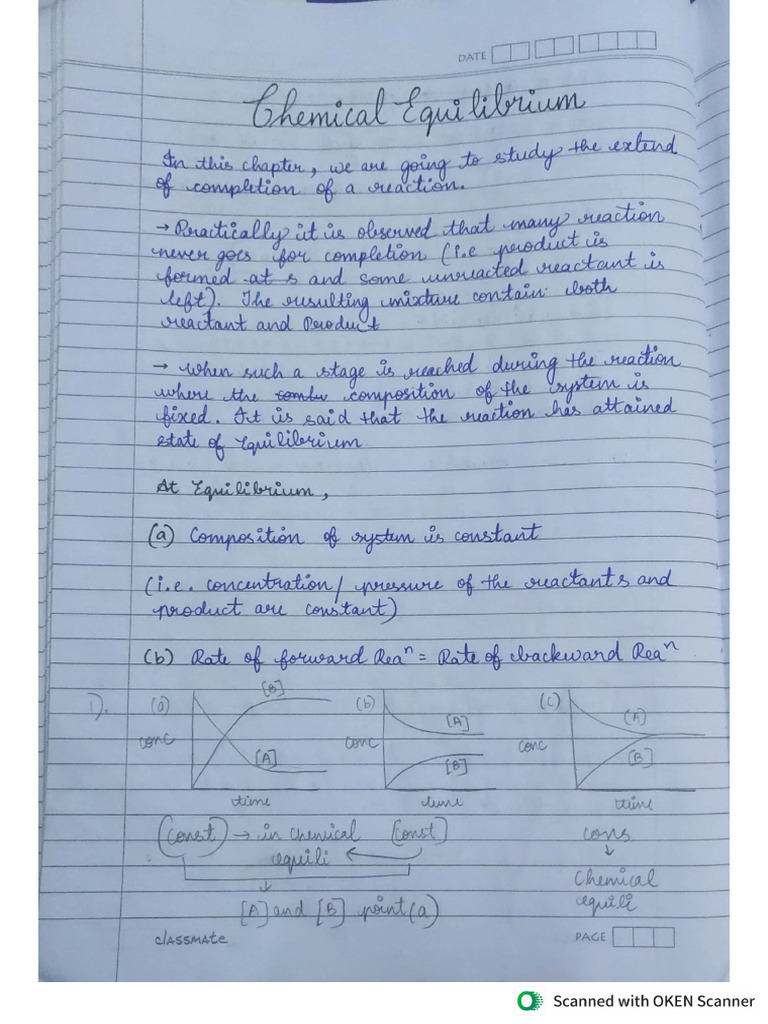 DATE
Chemical Equilibrium
In this chapter, we are going to study the extend
of completion of a reaction.
→ Practically it is observed that many reaction
never goes for completion (i.e product is
formed at s and some unreacted reactant is
left). The resulting mixture contain both
reactant and Product
→ when such a stage is reached during the reaction
where the composition of the system is
fixed. It is said that the reaction has attained
state of Equilibrium
At Equilibrium,
(a) Composition of system is constant
(i.e. concentration/ pressure of the reactants and
product are constant)
(b) Rate of forward Reaⁿ = Rate of backward Reaⁿ
1). (a) [B] (b) [A] (c) (A)
conc [A] conc [B] conc (B)
time time time
(const) → in chemical [const] cons
equili ← ↓
↓ Chemical
[A] and [B] point (a) equili
classmate PAGE
Scanned with OKEN Scanner